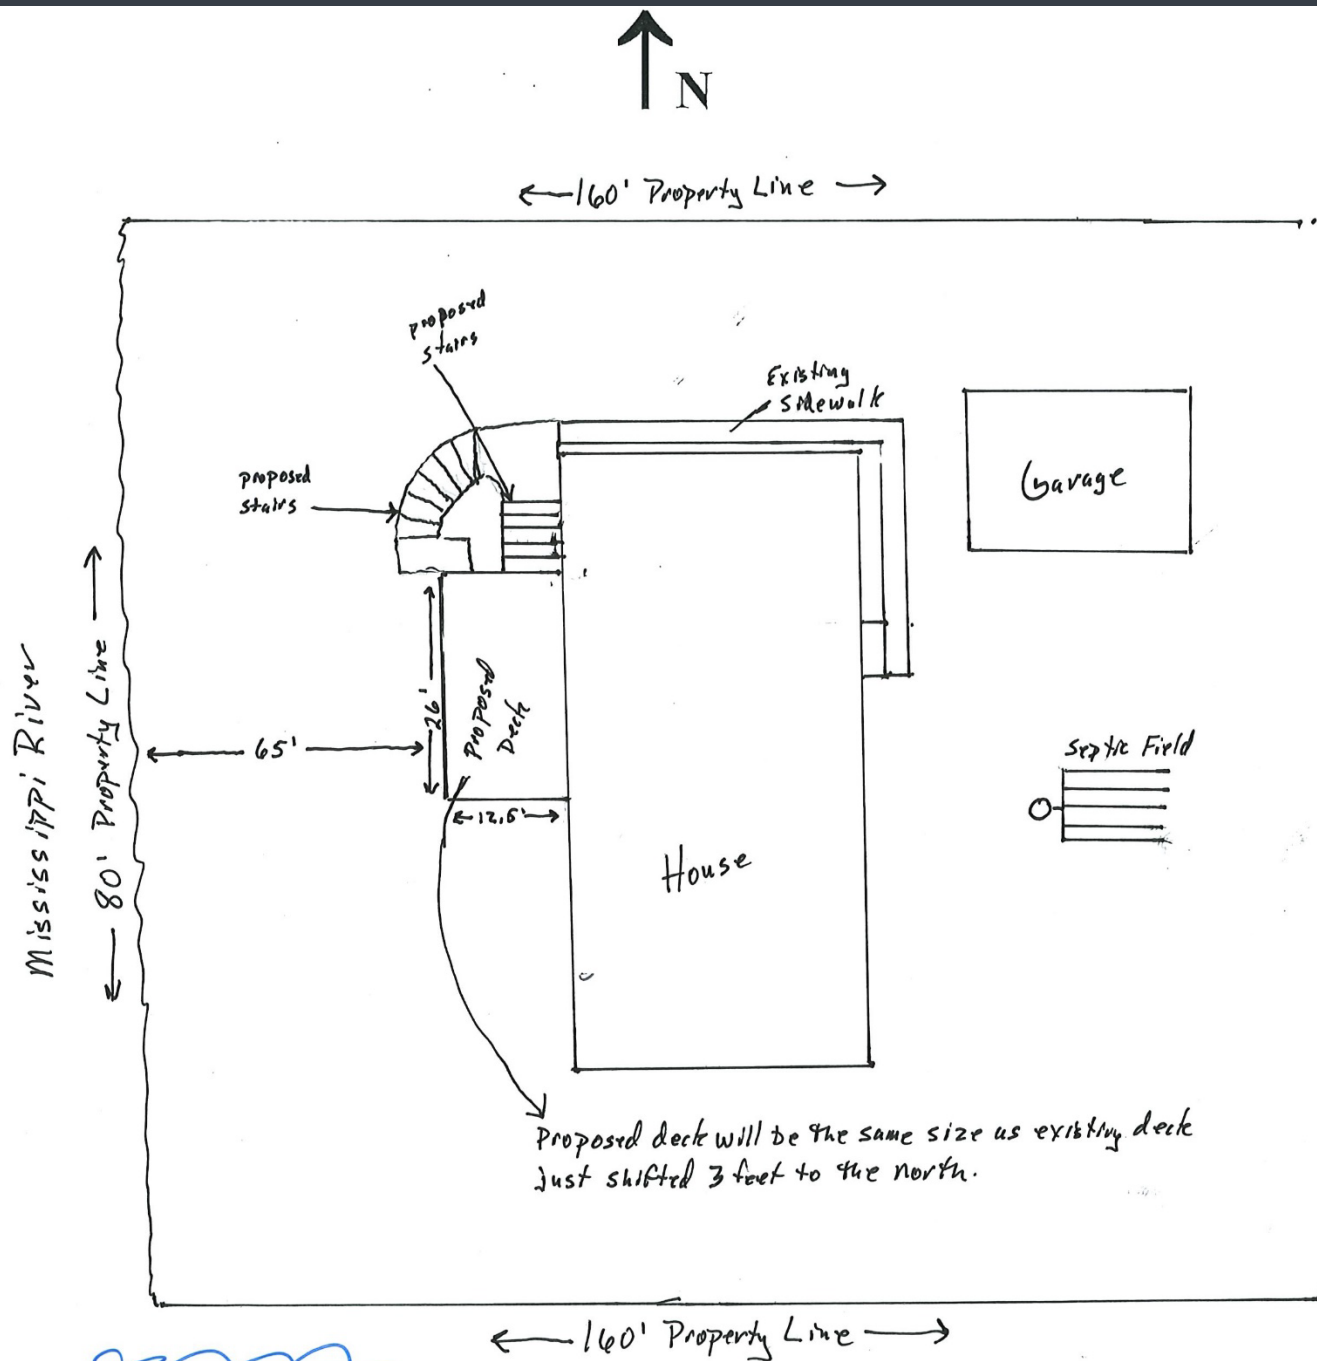 N
←160' Property Line →
proposed
stairs
Existing
Sidewalk
Garage
proposed
stairs
Mississippi River
← 80' Property Line →
← 65' →
←26'→
Proposed
Deck
←12.5'→
Septic Field
House
Proposed deck will be the same size as existing deck
just shifted 3 feet to the north.
←160' Property Line →